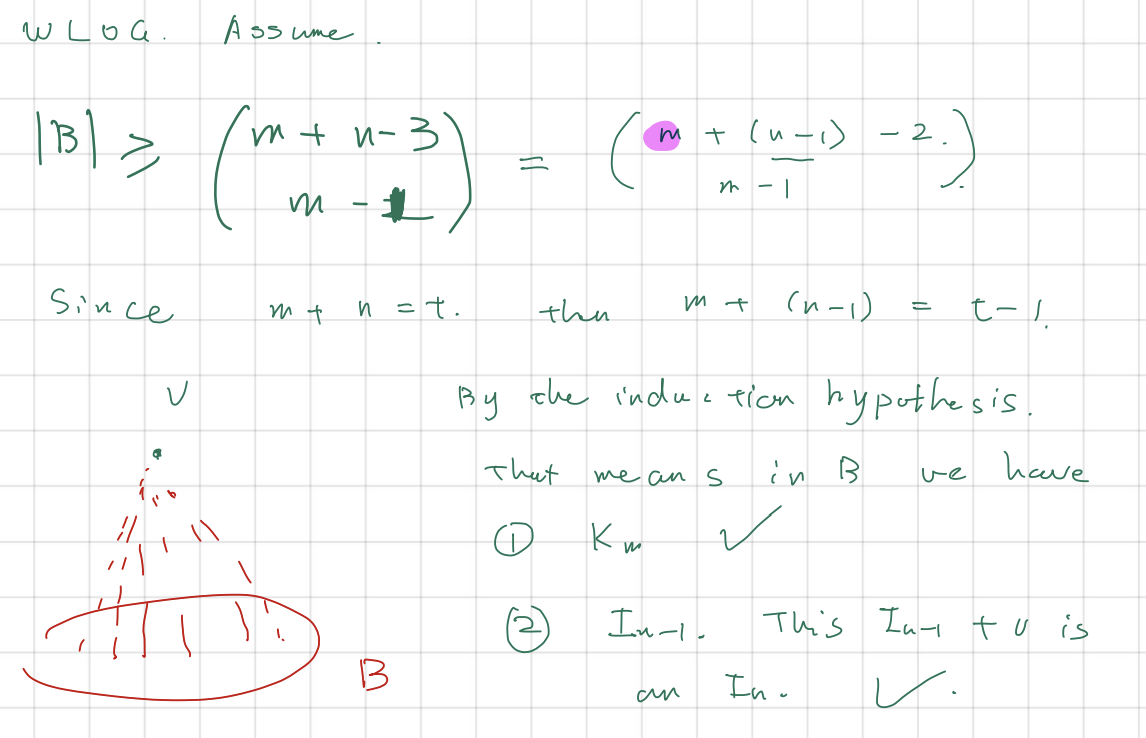 WLOG. Assume.
|B| ⩾ (m + n - 3 / m - 1) = (m + (n-1) - 2. / m - 1)
Since m + n = t. then m + (n-1) = t - 1.
V
By the induction hypothesis.
That means in B we have
① Km ✓
② In-1. This In-1 + v is
an In. ✓.
B